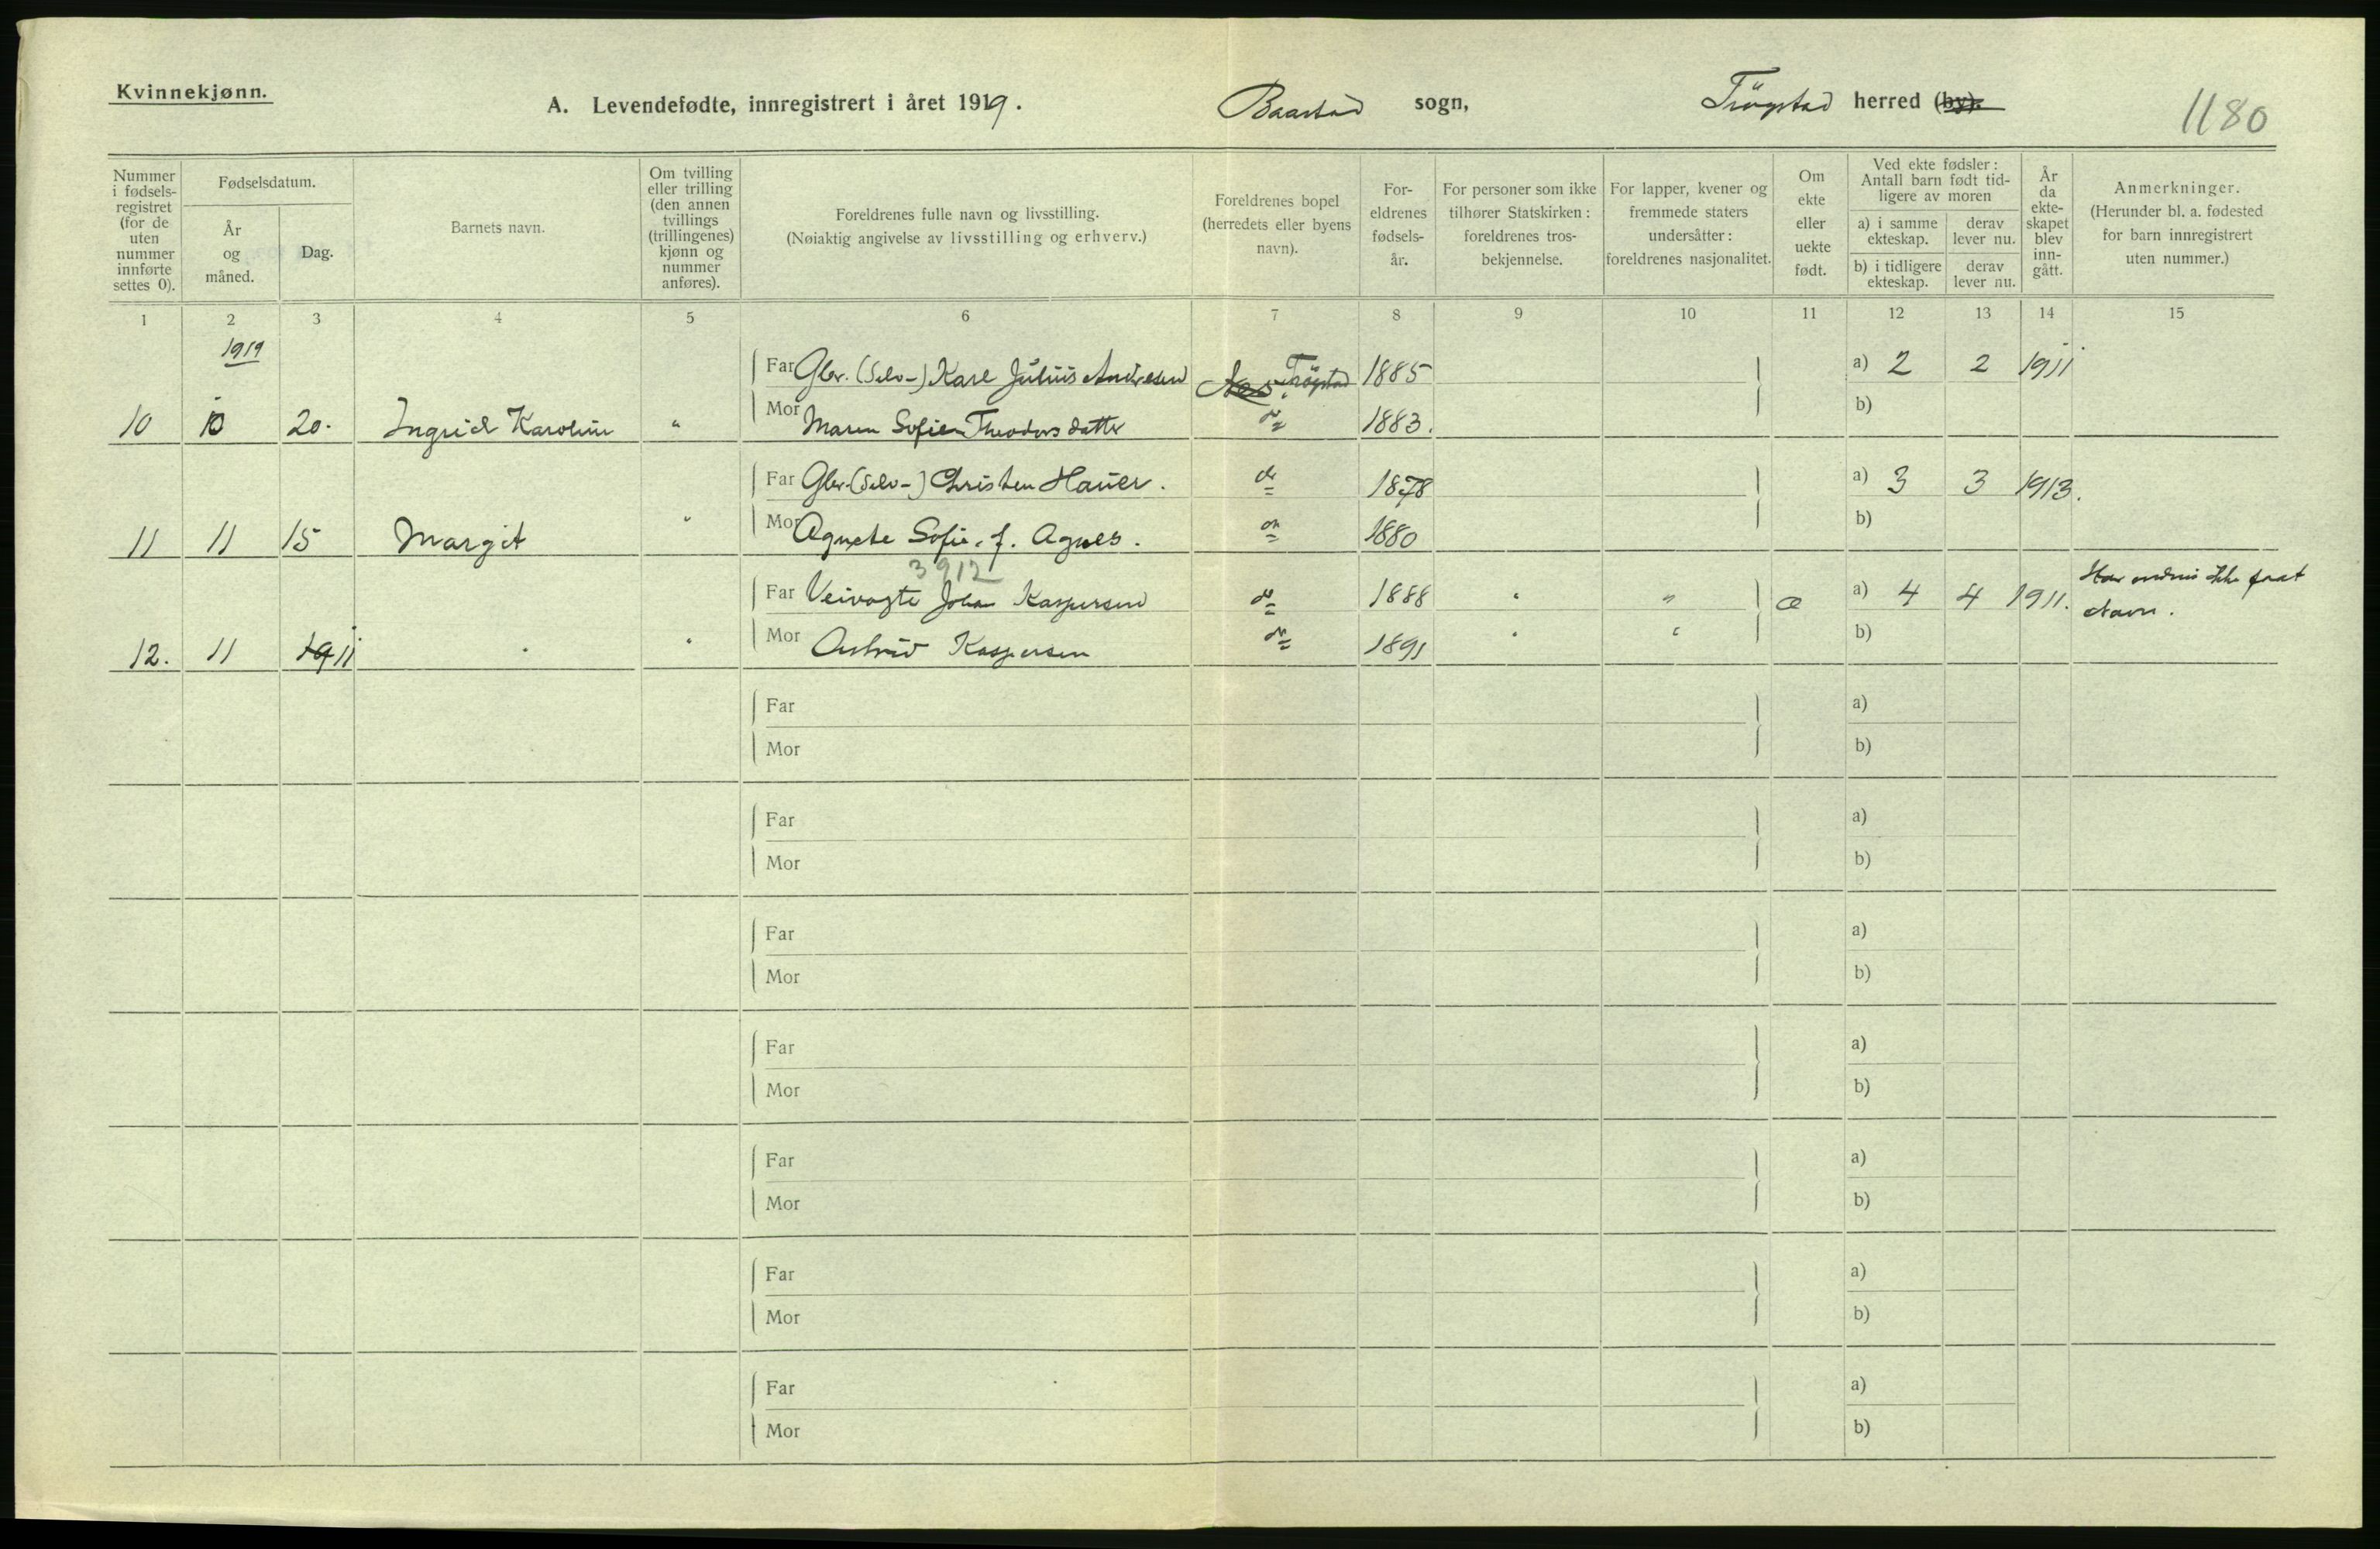 Kvinnekjønn.
A. Levendefødte, innregistrert i året 1919.
Baastad sogn,
Trøgstad herred (by).
1180
Nummer i fødsels-registret (for de uten nummer innførte settes 0).
Fødselsdatum.
År og måned.
Dag.
Barnets navn.
Om tvilling eller trilling (den annen tvillings (trillingenes) kjønn og nummer anføres).
Foreldrenes fulle navn og livsstilling.
(Nøiaktig angivelse av livsstilling og erhverv.)
Foreldrenes bopel (herredets eller byens navn).
For-eldrenes fødsels-år.
For personer som ikke tilhører Statskirken: foreldrenes tros-bekjennelse.
For lapper, kvener og fremmede staters undersåtter: foreldrenes nasjonalitet.
Om ekte eller uekte født.
Ved ekte fødsler: Antall barn født tid-ligere av moren
a) i samme ekteskap.
derav lever nu.
b) i tidligere ekteskap.
derav lever nu.
År da ekte-skapet blev inn-gått.
Anmerkninger.
(Herunder bl. a. fødested for barn innregistrert uten nummer.)
1 2 3 4 5 6 7 8 9 10 11 12 13 14 15
1919
Far Gbr. (Selv-) Karl Julius Andresen Trøgstad 1885 a) 2 2 1911
10 10 20. Ingrid Karoline " Mor Maren Sofie Theodorsdatter do 1883. b)
Far Gbr. (Selv-) Christen Hauer. do 1878 a) 3 3 1913.
11 11 15 Margit " Mor Agnete Sofie, f. Agnes. do 1880 b)
3912
Far Veivogte Johan Kaspersen do 1888 " " a) 4 4 1911. Har endnu ikke faat
Navn.
12. 11 1911 " " Mor Astrid Kaspersen do 1891 " " b)
Far a)
Mor b)
Far a)
Mor b)
Far a)
Mor b)
Far a)
Mor b)
Far a)
Mor b)
Far a)
Mor b)
Far a)
Mor b)